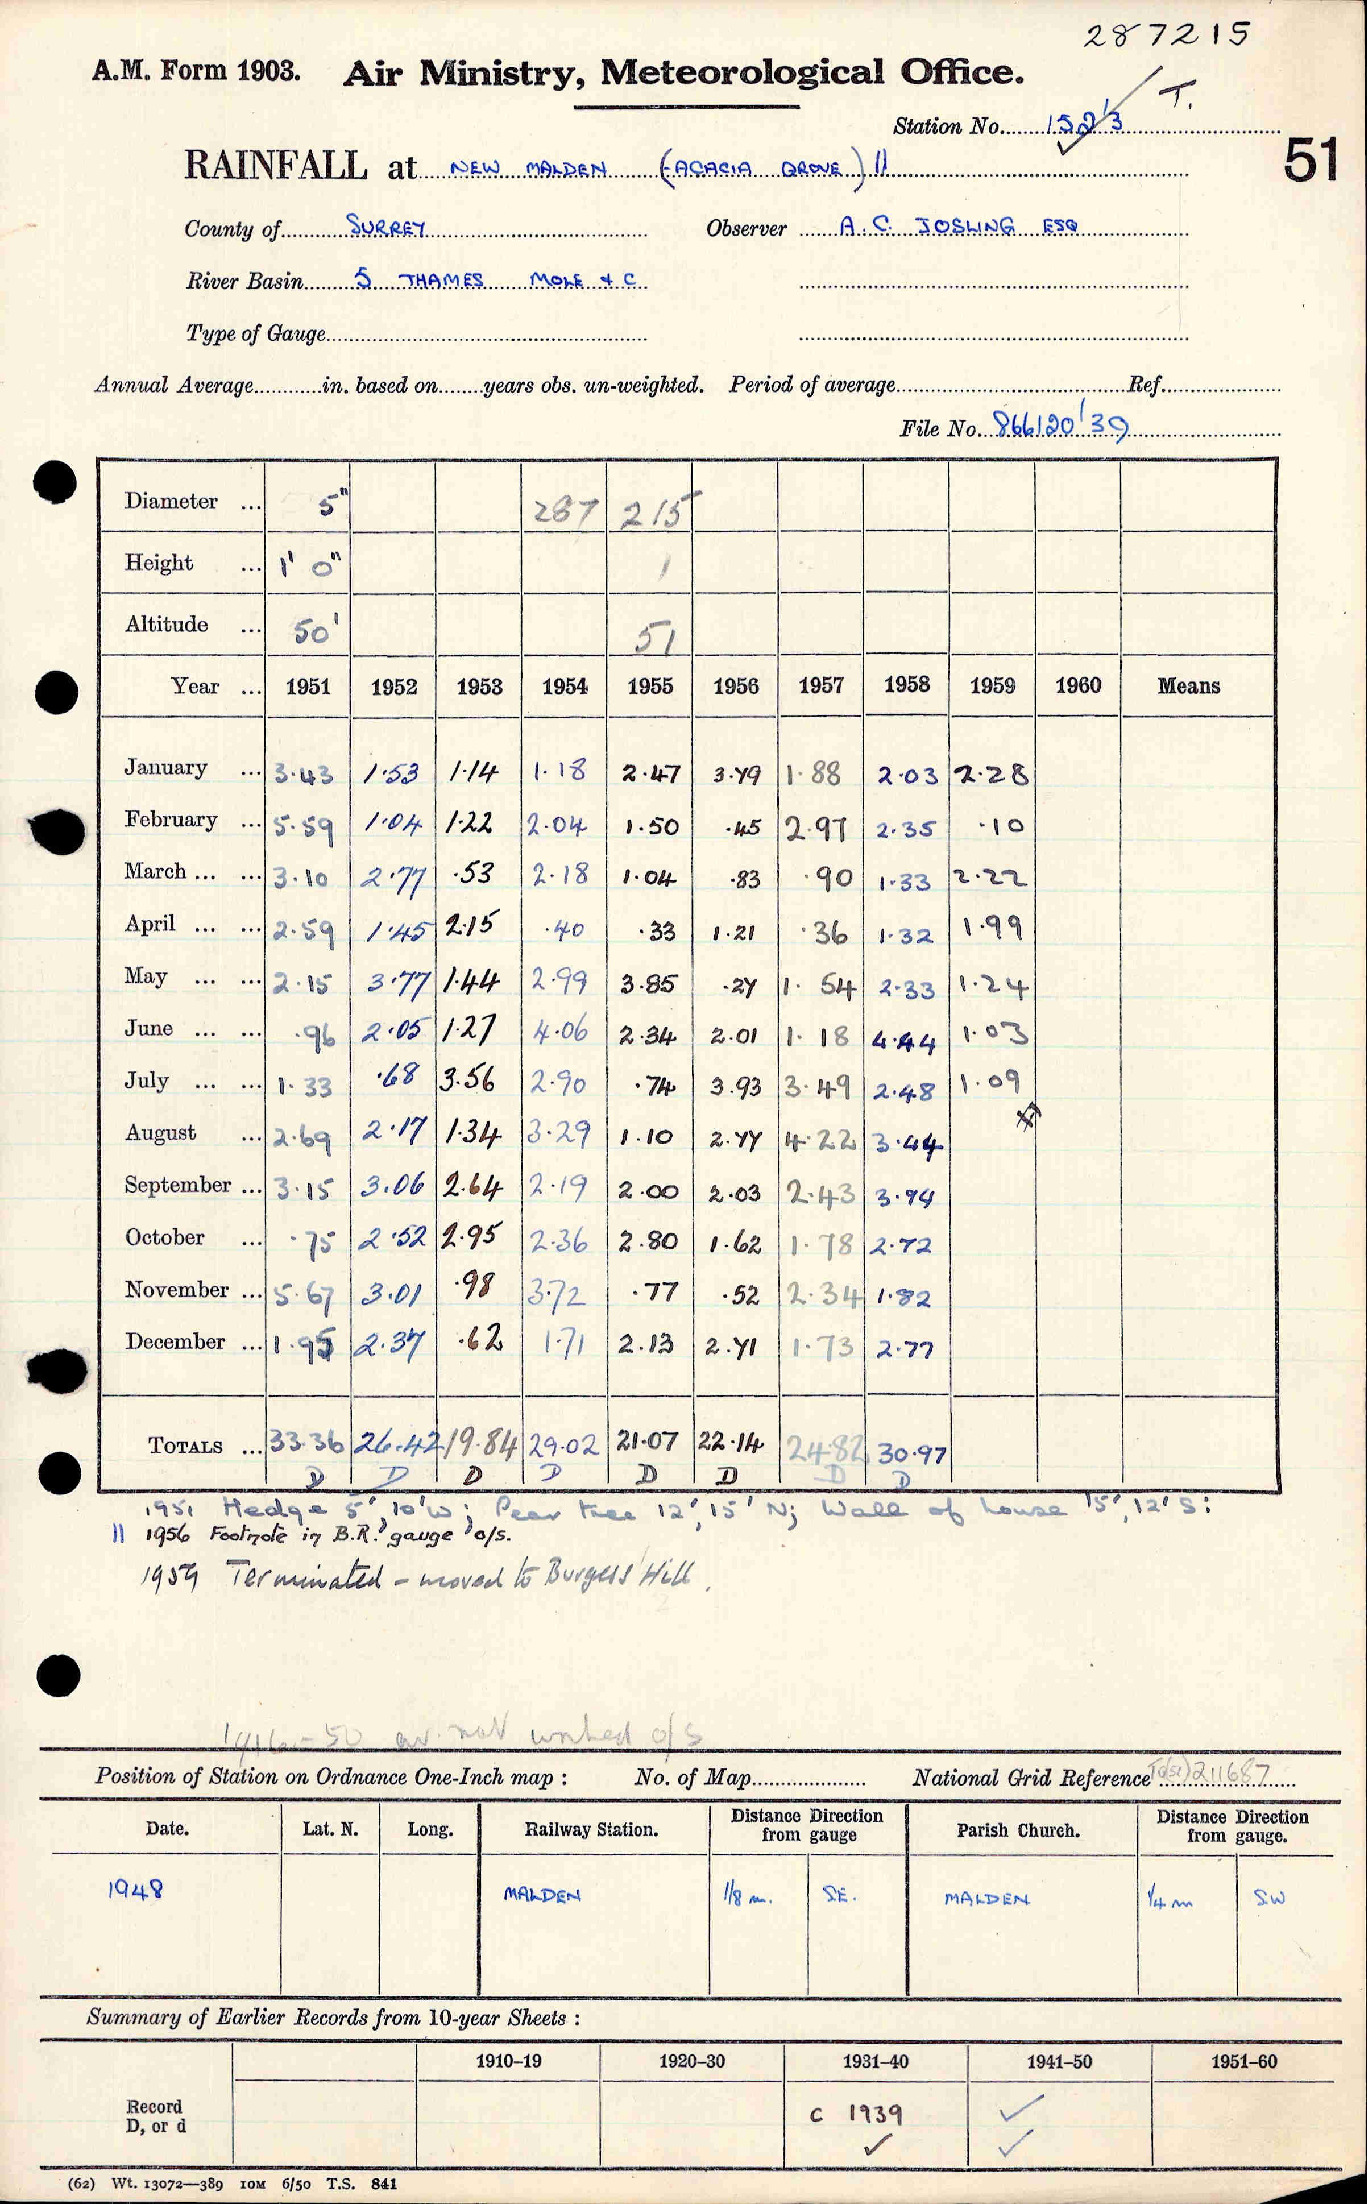 287215
A.M. Form 1903. Air Ministry, Meteorological Office.
T.
Station No. 152/3
51
RAINFALL at NEW MALDEN (ACACIA GROVE) ||
County of SURREY Observer A. C. JOSLING ESQ
River Basin 5 THAMES MOLE & C
Type of Gauge
Annual Average in. based on years obs. un-weighted. Period of average Ref.
File No. 866120/39
Diameter ... 5" 287 215
Height ... 1' 0" 1
Altitude ... 50' 51
Year ... 1951 1952 1953 1954 1955 1956 1957 1958 1959 1960 Means
January ... 3.43 1.53 1.14 1.18 2.47 3.79 1.88 2.03 2.28
February ... 5.59 1.04 1.22 2.04 1.50 .45 2.97 2.35 .10
March ... ... 3.10 2.77 .53 2.18 1.04 .83 .90 1.33 2.22
April ... ... 2.59 1.45 2.15 .40 .33 1.21 .36 1.32 1.99
May ... ... 2.15 3.77 1.44 2.99 3.85 .27 1.54 2.33 1.24
June ... ... .96 2.05 1.27 4.06 2.34 2.01 1.18 4.44 1.03
July ... ... 1.33 .68 3.56 2.90 .74 3.93 3.49 2.48 1.09
August ... 2.69 2.17 1.34 3.29 1.10 2.77 4.22 3.44
September ... 3.15 3.06 2.64 2.19 2.00 2.03 2.43 3.94
October ... .75 2.52 2.95 2.36 2.80 1.62 1.78 2.72
November ... 5.67 3.01 .98 3.72 .77 .52 2.34 1.82
December ... 1.95 2.37 .62 1.71 2.13 2.71 1.73 2.77
TOTALS ... 33.36 26.42 19.84 29.02 21.07 22.14 24.82 30.97
D D D D D D D D
1951 Hedge 5', 10' W; Pear tree 12', 15' N; Wall of house 15', 12' S:
|| 1956 Footnote in B.R. gauge o/s.
1959 Terminated - moved to Burgess Hill.
1916-50 av. not worked o/s
Position of Station on Ordnance One-Inch map : No. of Map National Grid Reference 211687
Date. Lat. N. Long. Railway Station. Distance Direction from gauge Parish Church. Distance Direction from gauge.
1948 MALDEN 1/8 m. S.E. MALDEN 1/4 m S.W
Summary of Earlier Records from 10-year Sheets :
1910–19 1920–30 1931–40 1941–50 1951–60
Record D, or d C 1939
(62) Wt. 13072—389 10M 6/50 T.S. 841